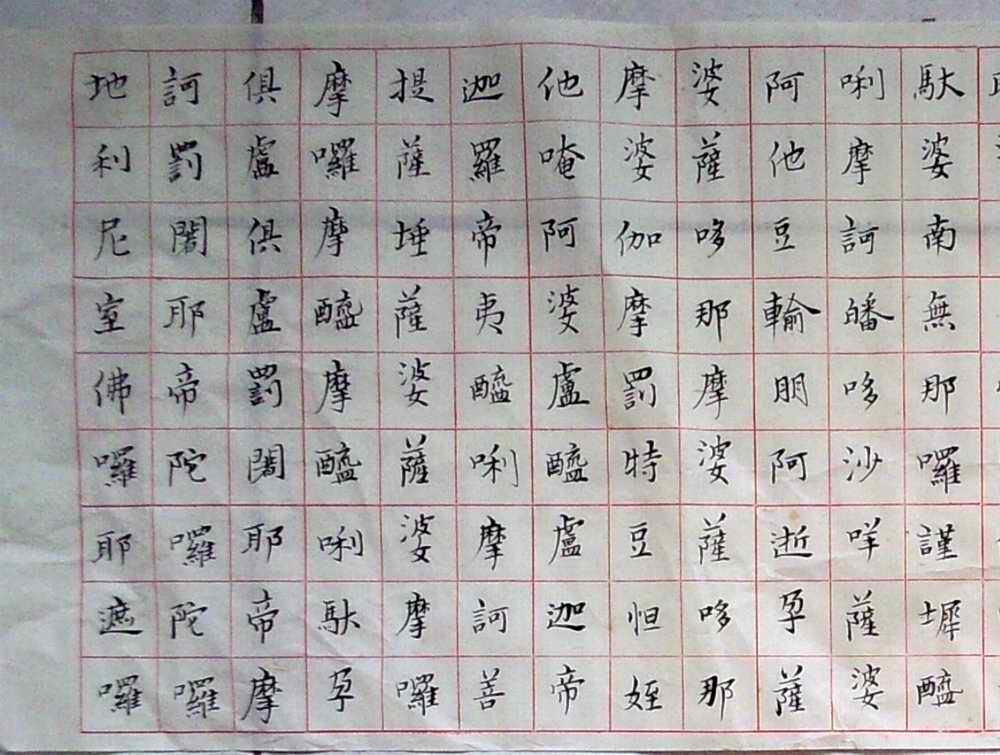 馱婆南無那囉謹墀醯
唎摩訶皤哆沙咩薩婆
阿他豆輸朋阿逝孕薩
婆薩哆那摩婆薩哆那
摩婆伽摩罰特豆怛姪
他唵阿婆盧醯盧迦帝
迦羅帝夷醯唎摩訶菩
提薩埵薩婆薩婆摩囉
摩囉摩醯摩醯唎馱孕
俱盧俱盧罰闍耶帝摩
訶罰闍耶帝陀囉陀囉
地利尼室佛囉耶遮囉